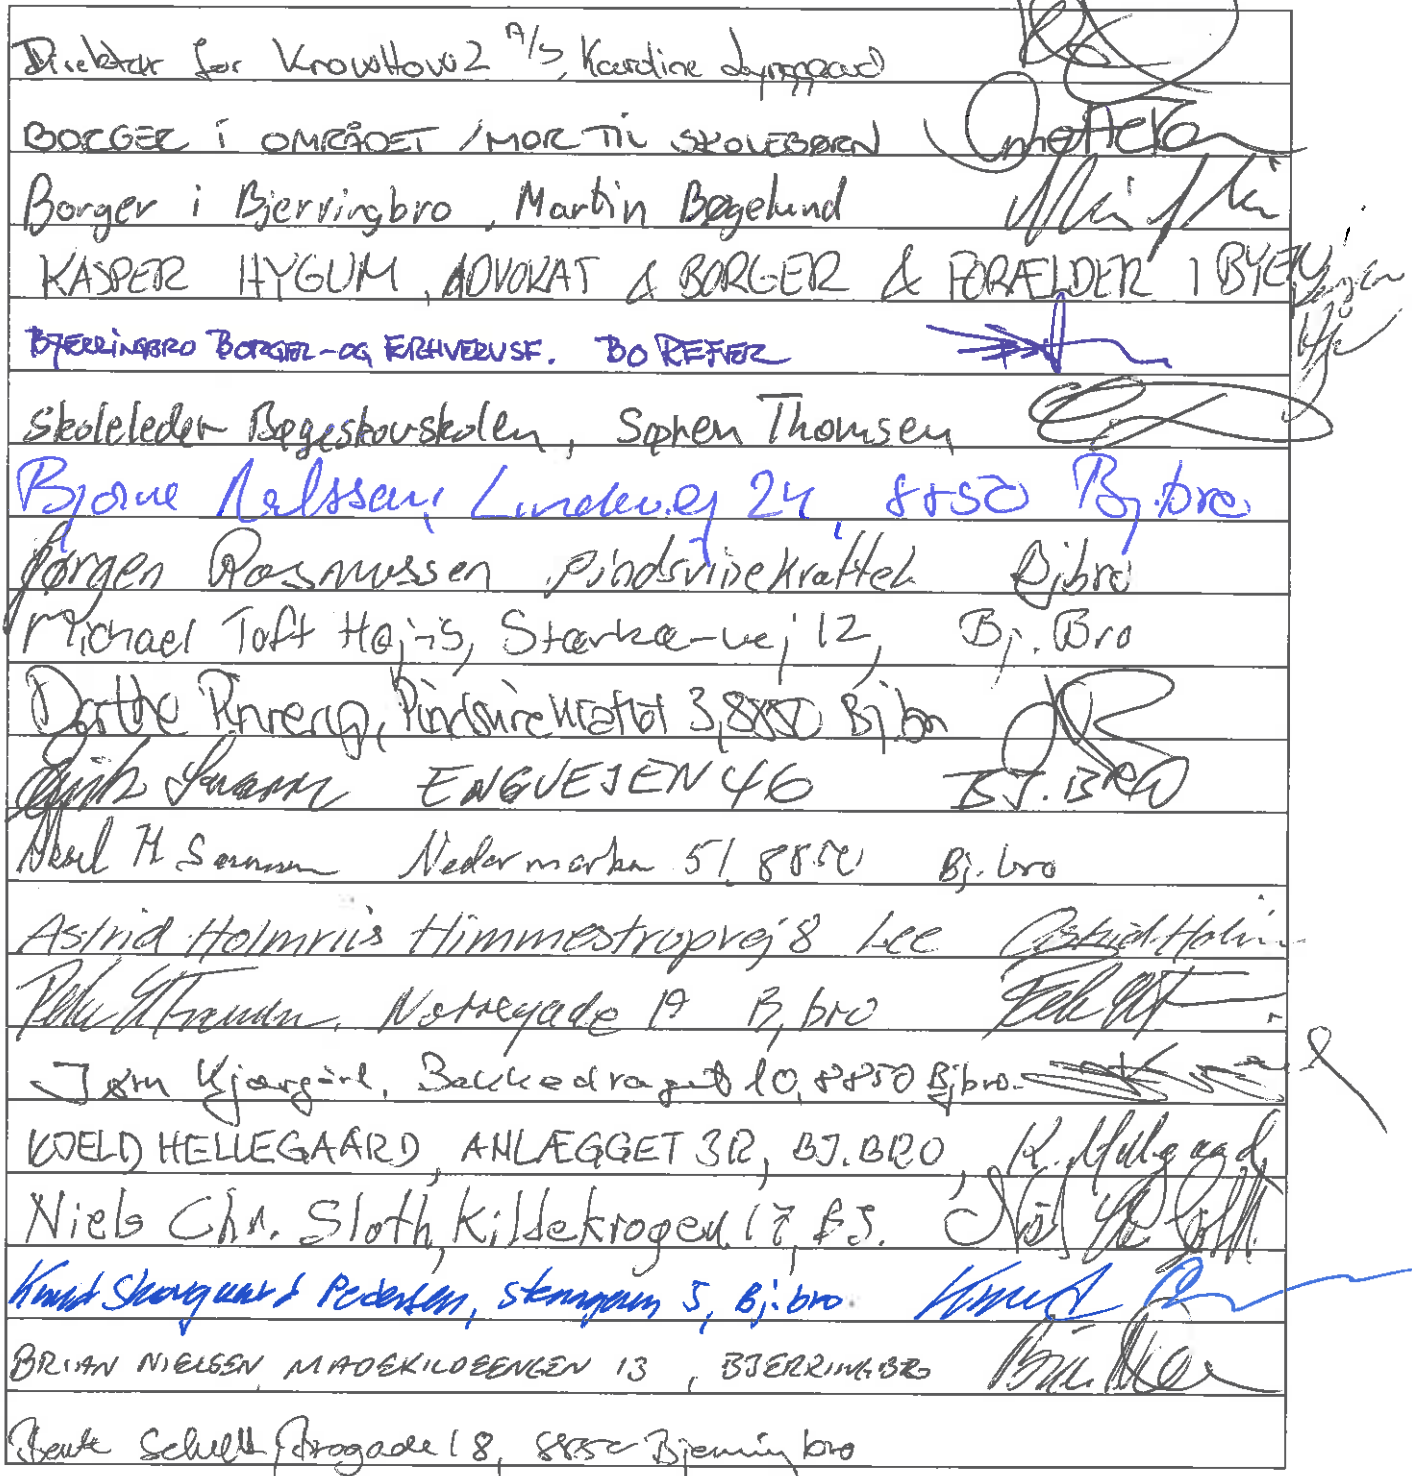 Direktør for A/S, Karoline Lynggaard
BORGER i OMRÅDET / MOR TIL SKOLEBØRN
Borger i Bjerringbro, Martin Bøgelund
KASPER HYGUM, ADVOKAT & BORGER & FORÆLDER I BYEN
BJERRINGBRO BORGER-OG ERHVERVSF. BO REFER
Skoleleder Bøgeskovskolen, Søren Thomsen
Bjarne Lindevej 24, 8850 Bj.bro
Jørgen Rasmussen Pindsvinekrattet Bjbro
Michael Toft Højris, Stærkærvej 12, Bj. Bro
Dorthe Pindsvinekrattet 3, 8850 Bj.bro
ENGVEJEN 46 BJ. BRO
Aksel H Nedermarken 51, 8850 Bj. bro
Astrid Holmriis Himmestrupvej 8 Lee Astrid Holm
Nørregade 19 Bj bro
Jørn Kjærgård, Bakkedraget 10, 8850 Bjbro.
KJELD HELLEGAARD, ANLÆGGET 3R, BJ.BRO, K. Hellegaard
Niels Chr. Sloth, Kildekrogen 17, BJ. Niels Chr Sloth
Knud Skovgaard Pedersen, 5, Bj.bro. Knud
BRIAN NIELSEN, MADEKILDEENGEN 13, BJERRINGBRO
Bente Brogade 18, 8850 Bjerringbro